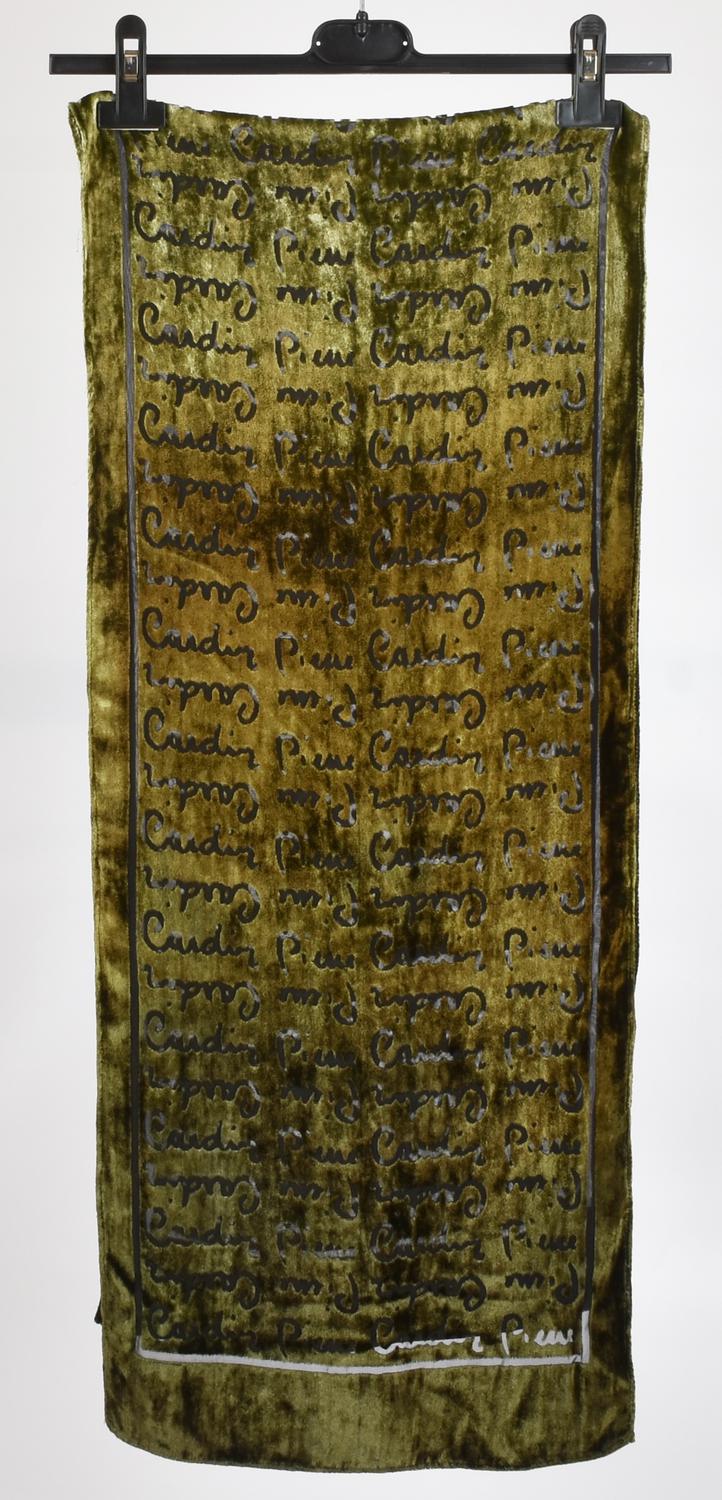 Pierre Cardin Pierre Cardin
Pierre Cardin Pierre Cardin
Cardin Pierre Cardin Pierre
Pierre Cardin Pierre Cardin
Cardin Pierre Cardin Pierre
Pierre Cardin Pierre Cardin
Cardin Pierre Cardin Pierre
Pierre Cardin Pierre Cardin
Cardin Pierre Cardin Pierre
Pierre Cardin Pierre Cardin
Cardin Pierre Cardin Pierre
Pierre Cardin Pierre Cardin
Cardin Pierre Cardin Pierre
Pierre Cardin Pierre Cardin
Cardin Pierre Cardin Pierre
Pierre Cardin Pierre Cardin
Cardin Pierre Cardin Pierre
Pierre Cardin Pierre Cardin
Cardin Pierre Cardin Pierre
Pierre Cardin Pierre Cardin
Cardin Pierre Cardin Pierre
Pierre Cardin Pierre Cardin
Cardin Pierre Cardin Pierre
Pierre Cardin Pierre Cardin
Cardin Pierre Cardin Pierre